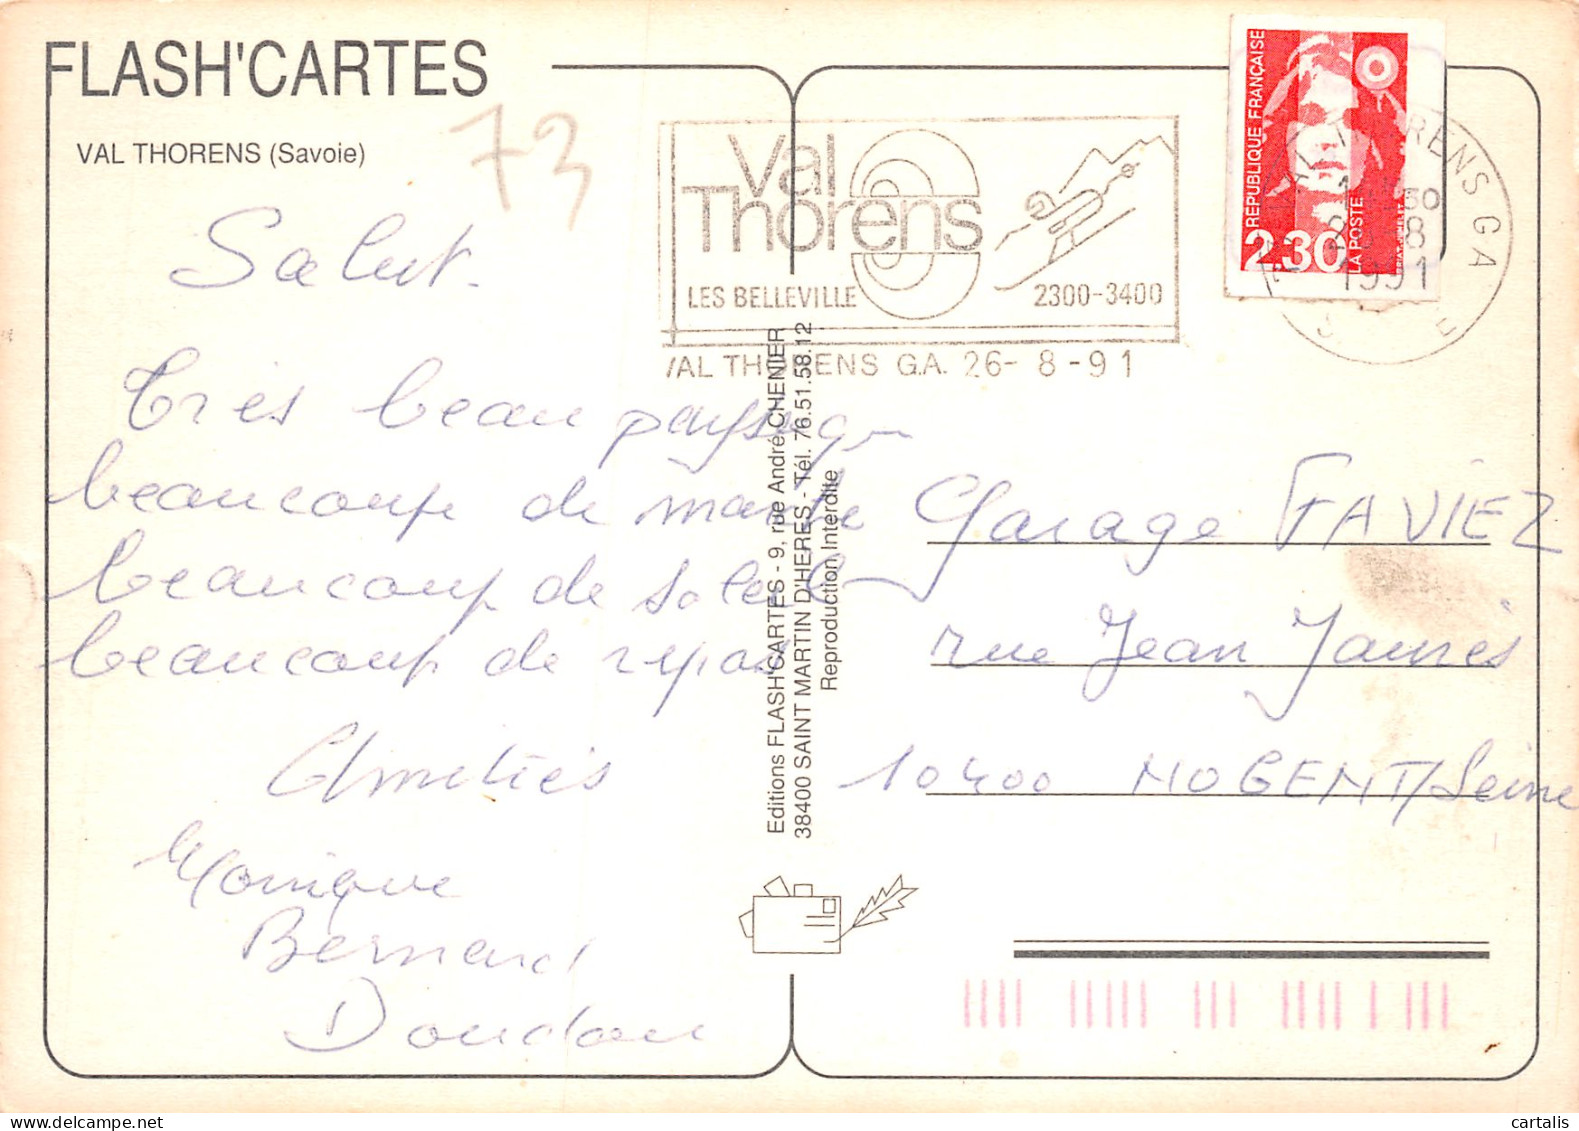 FLASH'CARTES
VAL THORENS (Savoie)
73
Salut.
Très beau paysage
beaucoup de marche
beaucoup de soleil
beaucoup de repos
Amitiés
Monique
Bernard
Doudou
Val
Thorens
LES BELLEVILLE
2300-3400
VAL THORENS G.A. 26-8-91
RÉPUBLIQUE FRANÇAISE
2,30
LA POSTE
VAL THORENS GA
30
8
1991
Editions FLASH'CARTES - 9, rue André CHENIER
38400 SAINT MARTIN D'HERES - Tél. 76.51.58.12
Reproduction Interdite
Garage FAVIEZ
rue Jean Jaurès
10400 NOGENT/Seine
cartalis